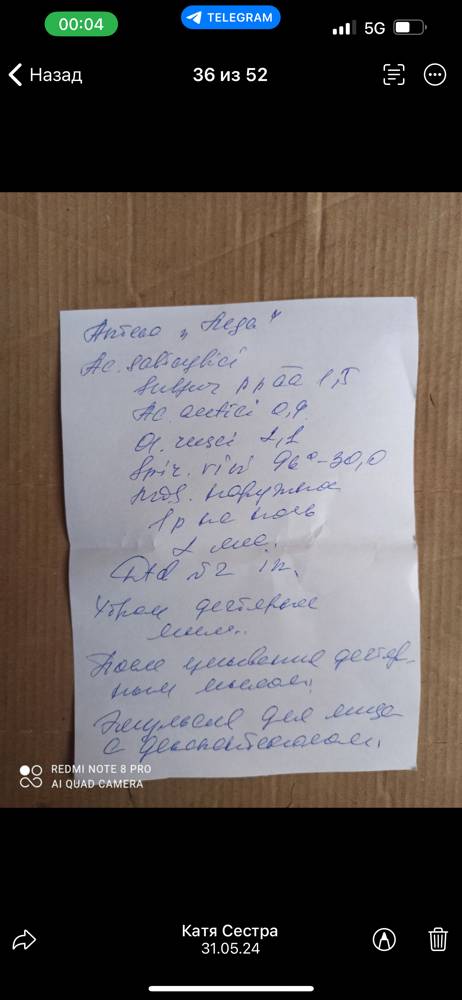 00:04
TELEGRAM
5G
Назад
36 из 52
Аптека "
Ac. salicylici
Sulfur pp āā 1,5
Ac.
Ol. rusci
Spir. vini 96° - 30,0
наружное
1 р на ночь
2 мес.
Dtd N2
Утром дегтярное
мыло.
После умывания дегтяр-
ным мылом.
Эмульсия для лица
с
REDMI NOTE 8 PRO
AI QUAD CAMERA
Катя Сестра
31.05.24